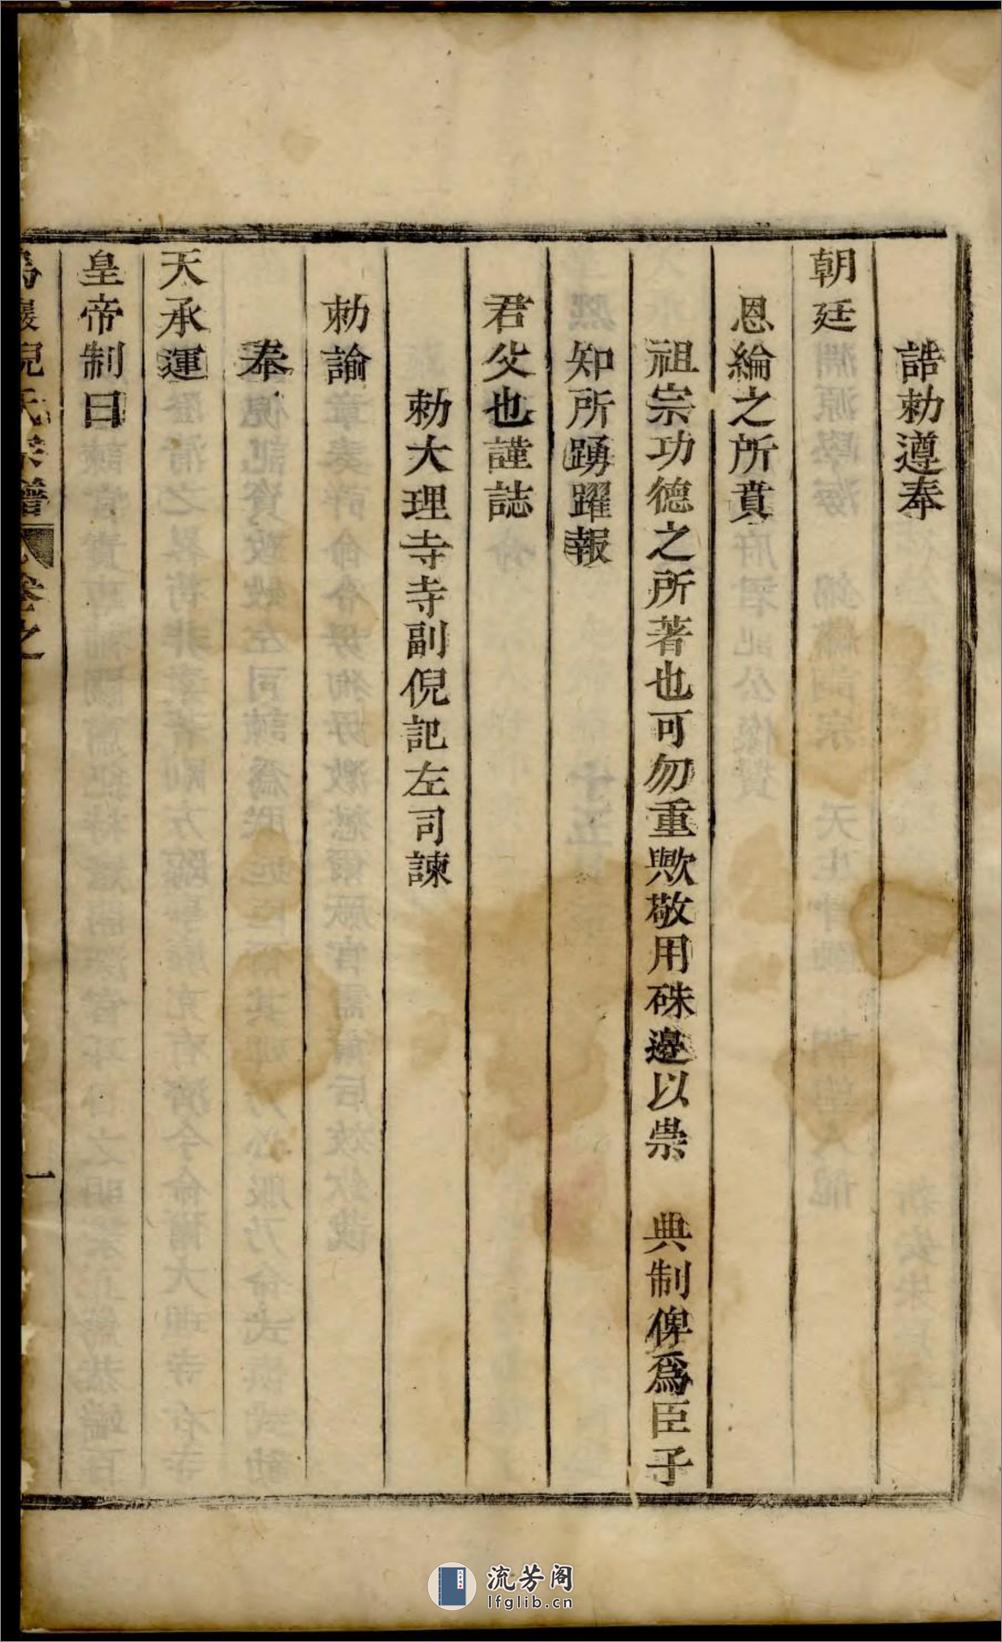 誥勅遵奉
朝廷
恩綸之所賁
祖宗功德之所著也可勿重歟敬用硃邉以崇　典制俾爲臣子
知所踴躍報
君父也謹誌
勅大理寺寺副倪記左司諫
勅諭
奉
天承運
皇帝制曰
倪氏宗譜　卷之　一
流芳阁
lfglib.cn